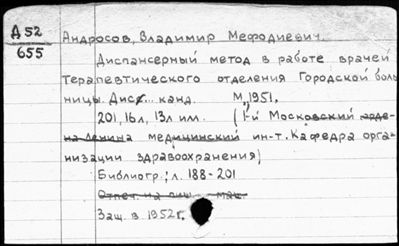 Д52
655
Андросов, Владимир Мефодиевич.
Диспансерный метод в работе врачей
терапевтического отделения Городской боль
ницы. Дисс... канд. М., 1951.
201, 16л, 13л илл. (1-й Московский орде-
на Ленина медицинский ин-т. Кафедра орга-
низации здравоохранения)
Библиогр.: л. 188-201
Отпеч. на пиш. маш.
Защ. в 1952г.